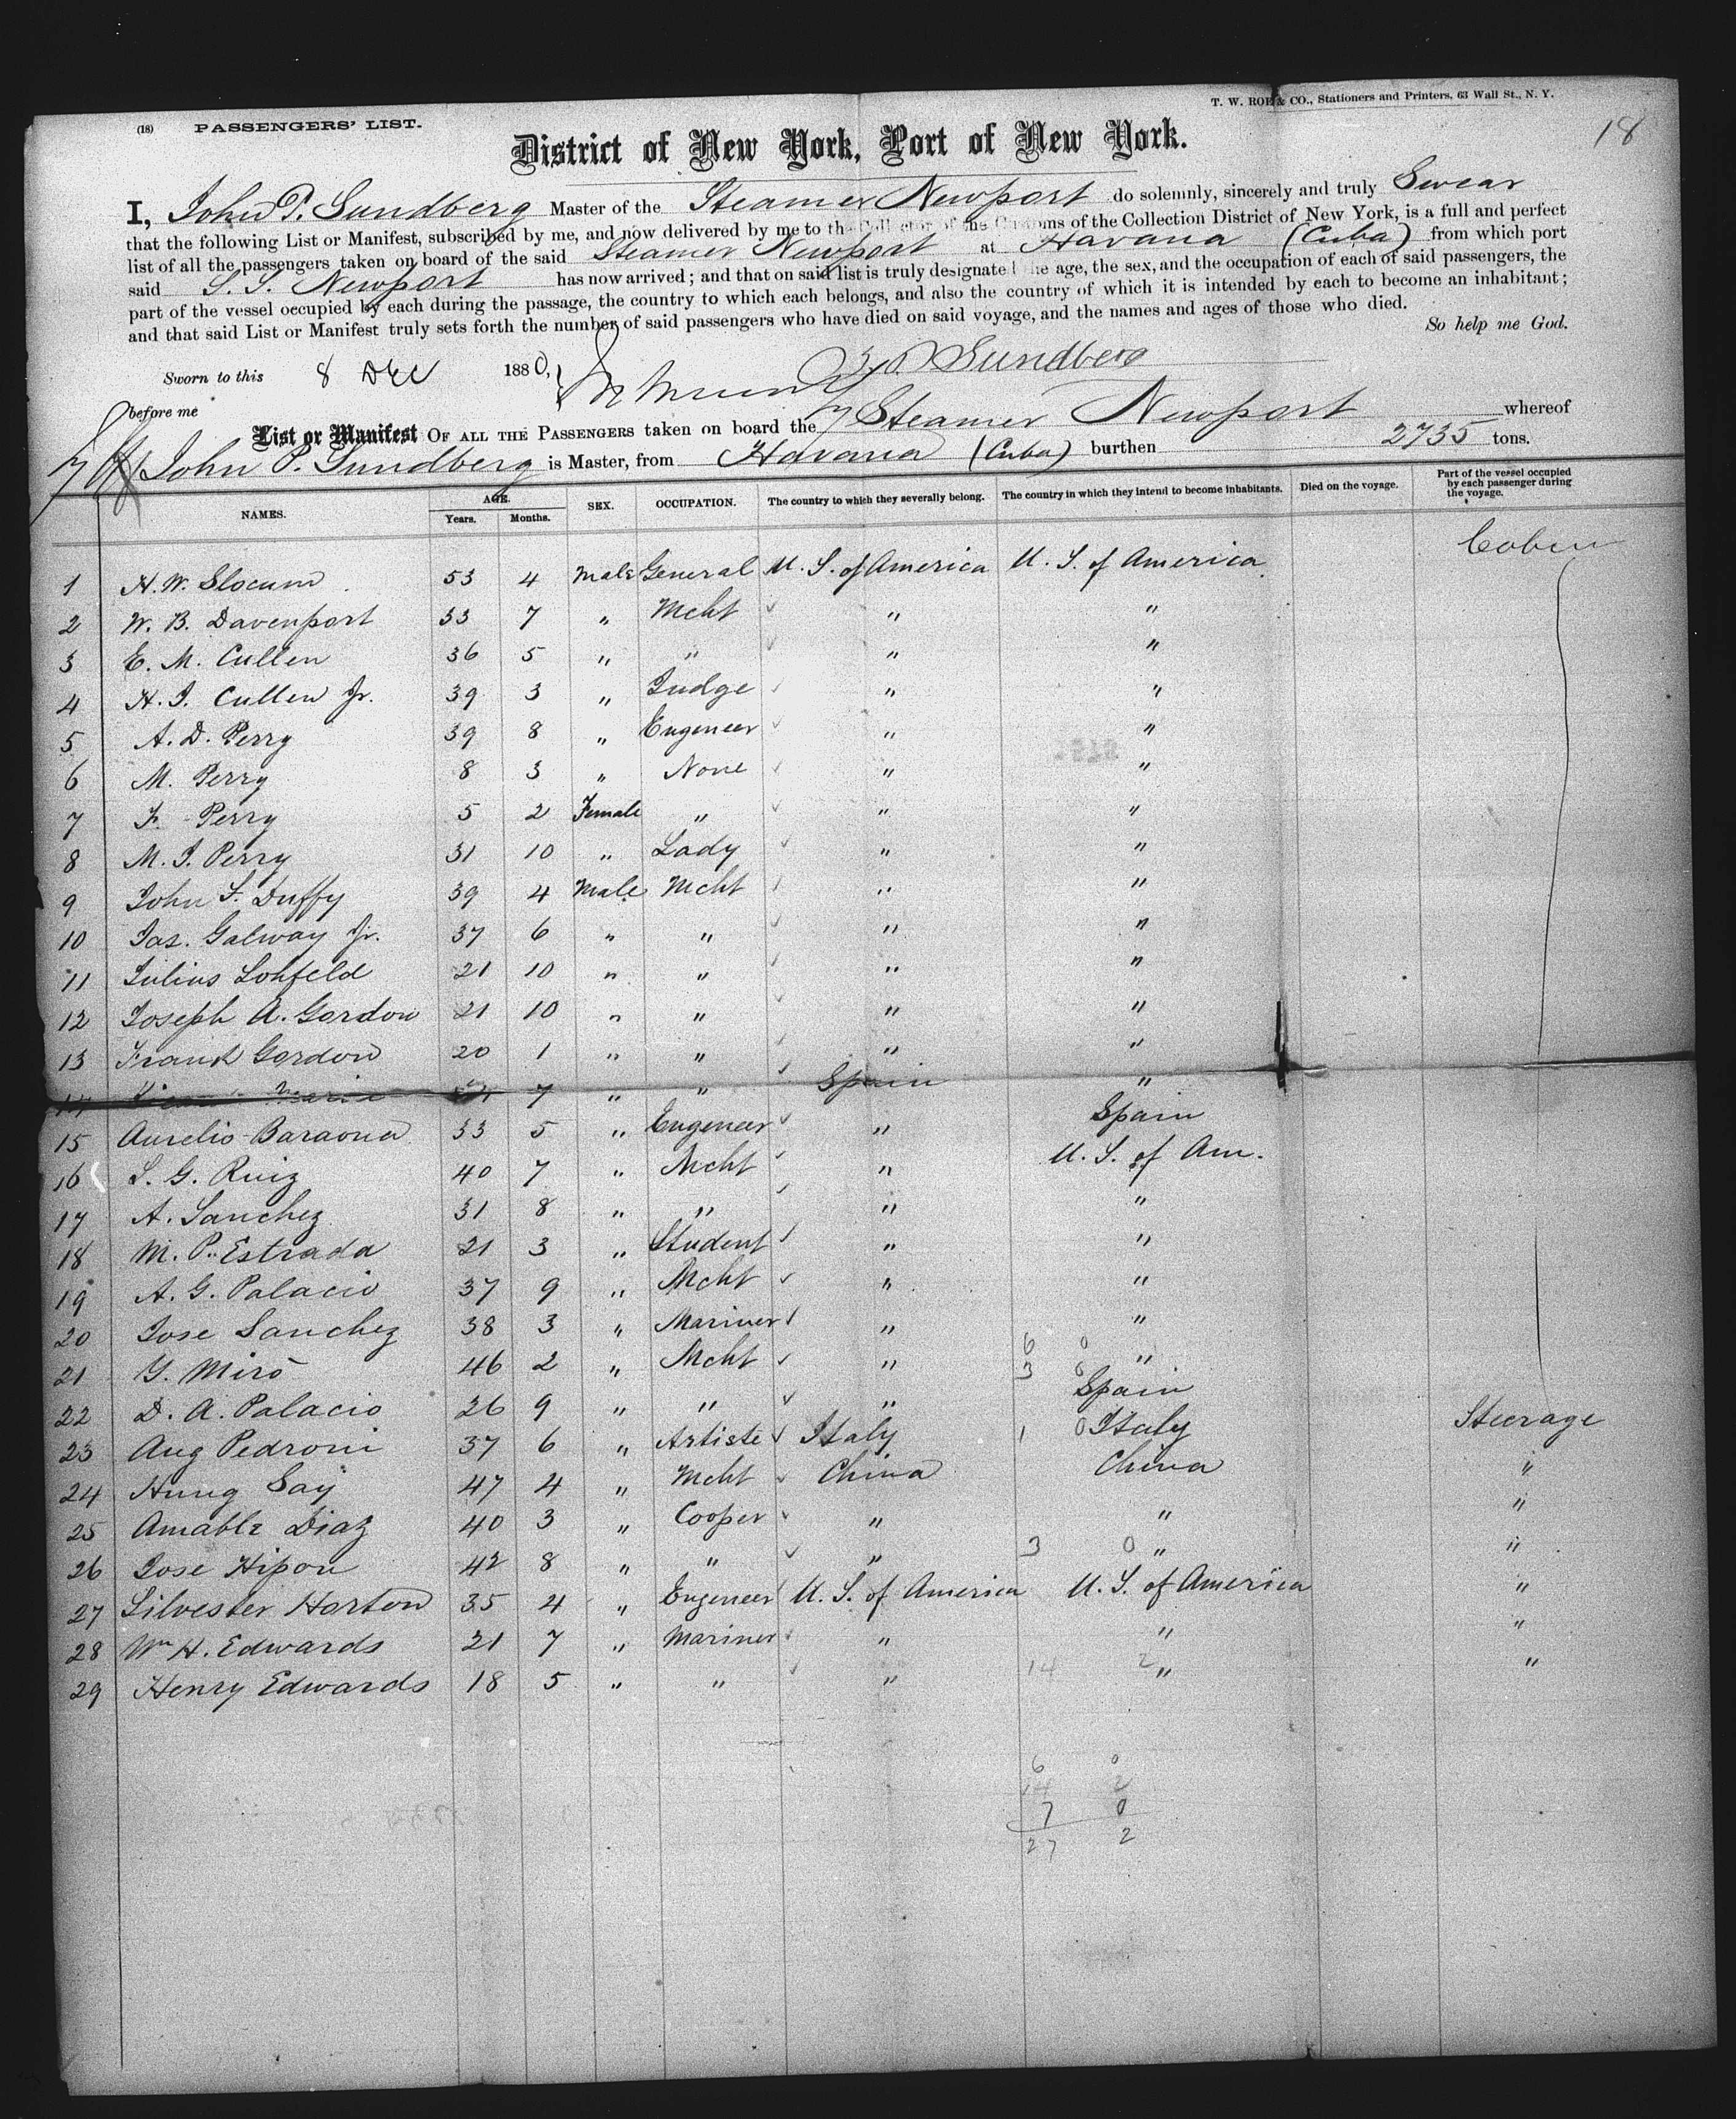 T. W. ROE & CO., Stationers and Printers, 63 Wall St., N. Y.
(18) PASSENGERS' LIST.
18
District of New York, Port of New York.
I, John P. Sundberg Master of the Steamer Newport do solemnly, sincerely and truly Swear
that the following List or Manifest, subscribed by me, and now delivered by me to the Collector of the Customs of the Collection District of New York, is a full and perfect
list of all the passengers taken on board of the said Steamer Newport at Havana (Cuba) from which port
said S. S. Newport has now arrived; and that on said list is truly designated the age, the sex, and the occupation of each of said passengers, the
part of the vessel occupied by each during the passage, the country to which each belongs, and also the country of which it is intended by each to become an inhabitant;
and that said List or Manifest truly sets forth the number of said passengers who have died on said voyage, and the names and ages of those who died.
So help me God.
Sworn to this 8 Dec 1880,
J. P. Sundberg
before me
List or Manifest OF ALL THE PASSENGERS taken on board the Steamer Newport whereof
John P. Sundberg is Master, from Havana (Cuba) burthen 2735 tons.
NAMES. AGE. Years. Months. SEX. OCCUPATION. The country to which they severally belong. The country in which they intend to become inhabitants. Died on the voyage. Part of the vessel occupied by each passenger during the voyage.
1 H. W. Slocum 53 4 Male General U. S. of America U. S. of America Caben
2 W. B. Davenport 33 7 " Mcht " "
3 E. M. Cullen 36 5 " " " "
4 H. J. Cullen Jr. 39 3 " Judge " "
5 A. D. Perry 39 8 " Engeneer " "
6 M. Perry 8 3 " None " "
7 F. Perry 5 2 Female " " "
8 M. J. Perry 31 10 " Lady " "
9 John F. Duffy 39 4 Male Mcht " "
10 Jas. Galway Jr. 37 6 " " " "
11 Julius Lohfeld 21 10 " " " "
12 Joseph A. Gordon 21 10 " " " "
13 Frank Gordon 20 1 " " " "
14 7 " " Spain "
15 Aurelio Baraona 33 5 " Engeneer " Spain
16 S. G. Ruiz 40 7 " Mcht " U. S. of Am.
17 A. Sanchez 31 8 " " " "
18 M. P. Estrada 21 3 " Student " "
19 A. G. Palacio 37 9 " Mcht " "
20 Jose Sanchez 38 3 " Mariner " "
6 0
21 Y. Miro 46 2 " Mcht " "
3 0
22 D. A. Palacio 26 9 " " " Spain
23 Aug Pedroni 37 6 " Artiste Italy 1 0 Italy Steerage
24 Hung Say 47 4 " Mcht China China "
25 Amable Diaz 40 3 " Cooper " " "
26 Jose Hipon 42 8 " " " 3 0 " "
27 Silvester Horton 35 4 " Engeneer U. S. of America U. S. of America "
28 Wm H. Edwards 21 7 " Mariner " " "
29 Henry Edwards 18 5 " " " 14 2 " "
6 0
14 2
7 0
27 2